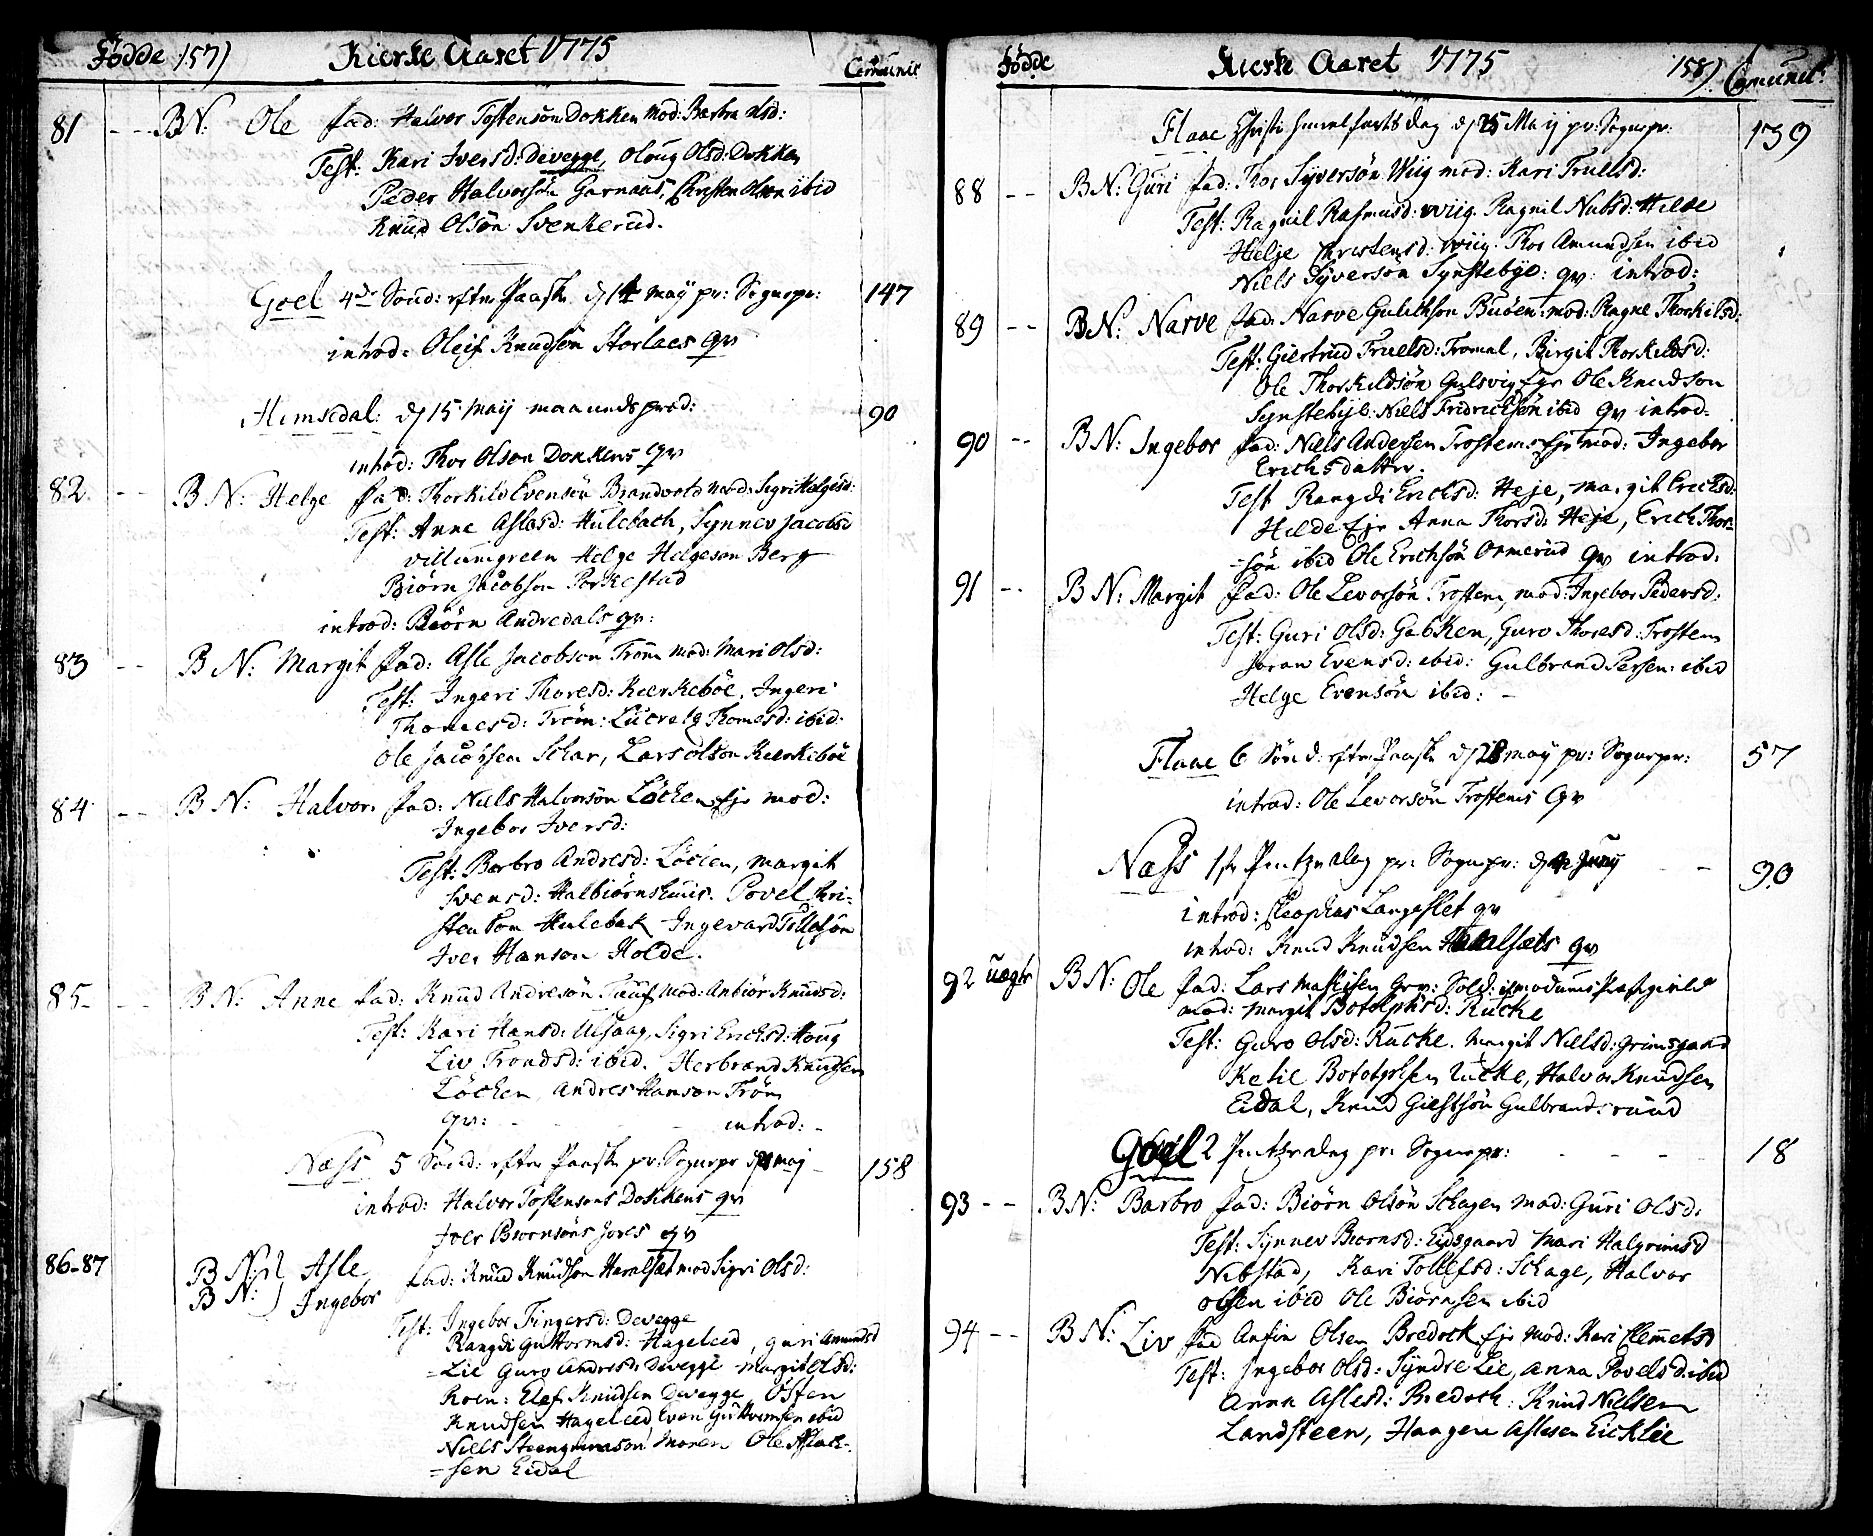 Fødde 157) Kierke Aaret 1775 Comunic
81 -- BN: Ole fad: Halvor Tostensøn Dokken mod: Barbra Olsd:
Test: Kari Iversd: Devegge, Oloug Olsd: Dokken
Peder Halvorsøn Garnaas, Christen Olsen ibid
Knud Olsøn Svenkerud.
Goel 4de Sønd: efter Paaske d 14 May pr: Sognepr: 147
introd: Oleif Knudsøn Storlaes qv
Hemsedal: d 15 May maanedspræd: 90
introd: Thor Olson Donkens qv
82. -- BN: Helge fad: Thorkild Evensøn Brandvold mod: Sigri Helgesd:
Test: Anne Aslasd: Hulebach, Synnev Jacobsd
Villumgreen Helge Helgeson Berg
Biørn Jacobson Torkestad
introd: Biørn Andredals qv:
83 -- BN: Margit fad: Asle Jacobson Trøm mod: Mari Olsd:
Test: Ingeri Thoresd: Kierkebøe, Ingeri
Thomesd: Trøm: Lucrelg Thomesd: ibid:
Ole Jacobsen Schar, Lars Olson Kierkebøe
84 -- BN: Halvor fad: Niels Halvorsøn Løcken Eje mod:
Ingebor Iversd:
Test: Barbro Andresd: Løcken, Margit
Svensd: Halbiørnshuus. Povel Chri-
stenson Hulebak Ingevard Tollefsøn
Iver Hanson Holde.
85- -- BN: Anne fad: Knud Andresøn Tuuf mod: Anbiør Knudsd:
Test: Kari Hansd: Ulsaag, Sigri Erichsd: Houg
Liv Trondsd: ibid. Herbrand Knudsen
Løcken, Andres Hanson Trøm
qv: introd: -
Næss 5 Sønd: efter Paaske pr: Sognepr d 21 Maj 158
introd: Halvor Tostensons Dokkens qv
Iver Biørnsøns Jores qv
86-87 BN: } Asle, fad: Knud Knudson Haralset mod Sigri Olsd:
BN: } Ingebor
Test: Ingebor Fingersd: Devegge
Rangdi Guttormsd: Hageleed, Guri Amundsd
=Lie Guro Andresd: Devegge Margit Olsd:
Roen: Elef Knudsen Devegge, Østen
Knudsen Hageleed Even Guttormsen ibid
Niels Steengrimson Moren Ole Aslack-
=sen Eidal
Fødde Kierke Aaret 1775 158). Comunic:
Flaae Christi Himmelfarts dag d 25 May pr: Sognepr: 139
88 -- BN: Guri fad: Thor Syversøn Wiig mod: Kari Truelsd:
Test: Ragnil Rasmusd: Wiig. Ragnil Nubsd: Hilde
Helje Christensd: Wiig. Thor Amundsen ibid
Niels Syversøn Synstebye: qv: introd:
89 -- BN: Narve fad: Narve Gulichson Buøen: mod: Ragne Thorkilsd:
Test: Giertrud Truelsd: Tromal, Birgit Thorkildsd:
Ole Thorkildsøn Gulsvig Eje Ole Knudson
Synstebye: Niels Fridrichsøn ibid qv introd:
90 -- BN: Ingebor fad: Niels Andersen Trostems Eje mod: Ingebor
Erichsdatter.
Test Rangdi Erichsd: Heje, Margit Erichsd:
Hilde Eje Anna Thorsd: Heje, Erich Thor=
=søn ibid Ole Erichsøn Ormerud qv introd:
91 -- BN: Margit fad: Ole Levorsøn Trostem, mod: Ingebor Pedersd:
Test: Guri Olsd: Gebken, Guro Thoresd: Trostem
Joran Evensd: ibid: Gulbrand Persen: ibid
Helge Evensøn ibid: -
Flaae 6 Sønd: efter Paaske d 28 May pr: Sognepr: 57
introd: Ole Levorsøn Trostems qv
Næss 1ste Pintzedag pr: Sognepr: d 4 Junij - 90
introd: Cleophas Langeslet qv
introd: Knud Knudsen Haralsæts qv
92 uægte BN: Ole fad: Lars Mathisen Gev: Sold: i Modums Præstegield
mod: Margit Botolphsd: Rucke
Test: Guro Olsd: Rucke. Margit Nielsd: Grimsgaard
Ketil Bototphsen Rucke, Halvor Knudsen
Eidal, Knud Giestsøn Gulbrandsruud
Goel 2 Pintzedag pr: Sognepr: - - - 18
93 -- BN: Barbro fad: Biørn Olsøn Schagen mod: Guri Olsd:
Test: Synnev Biørnsd: Eidsgaard Mari Halgrimsd
Nibstad, Kari Tollefsd: Schage, Halvor
Olsen ibid Ole Biørnsen ibid
94 -- BN: Liv fad Anfin Olsen Bredock Eje mod: Kari Clemmetsd
Test: Ingebor Olsd: Syndre Lie, Anna Povelsd: ibid
Anna Aslesd: Bredock: Knud Nielsen
Landsteen, Haagen Aslesen Eicklie